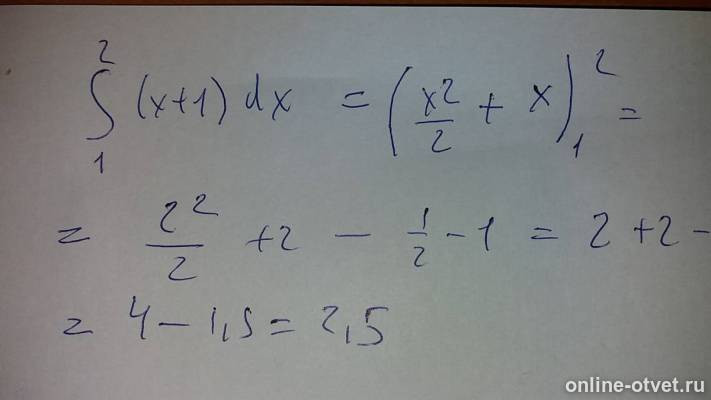 ∫₁² (x+1) dx = (x²/2 + x)₁² =
= 2²/2 + 2 − 1/2 − 1 = 2 + 2 −
= 4 − 1,5 = 2,5
online-otvet.ru